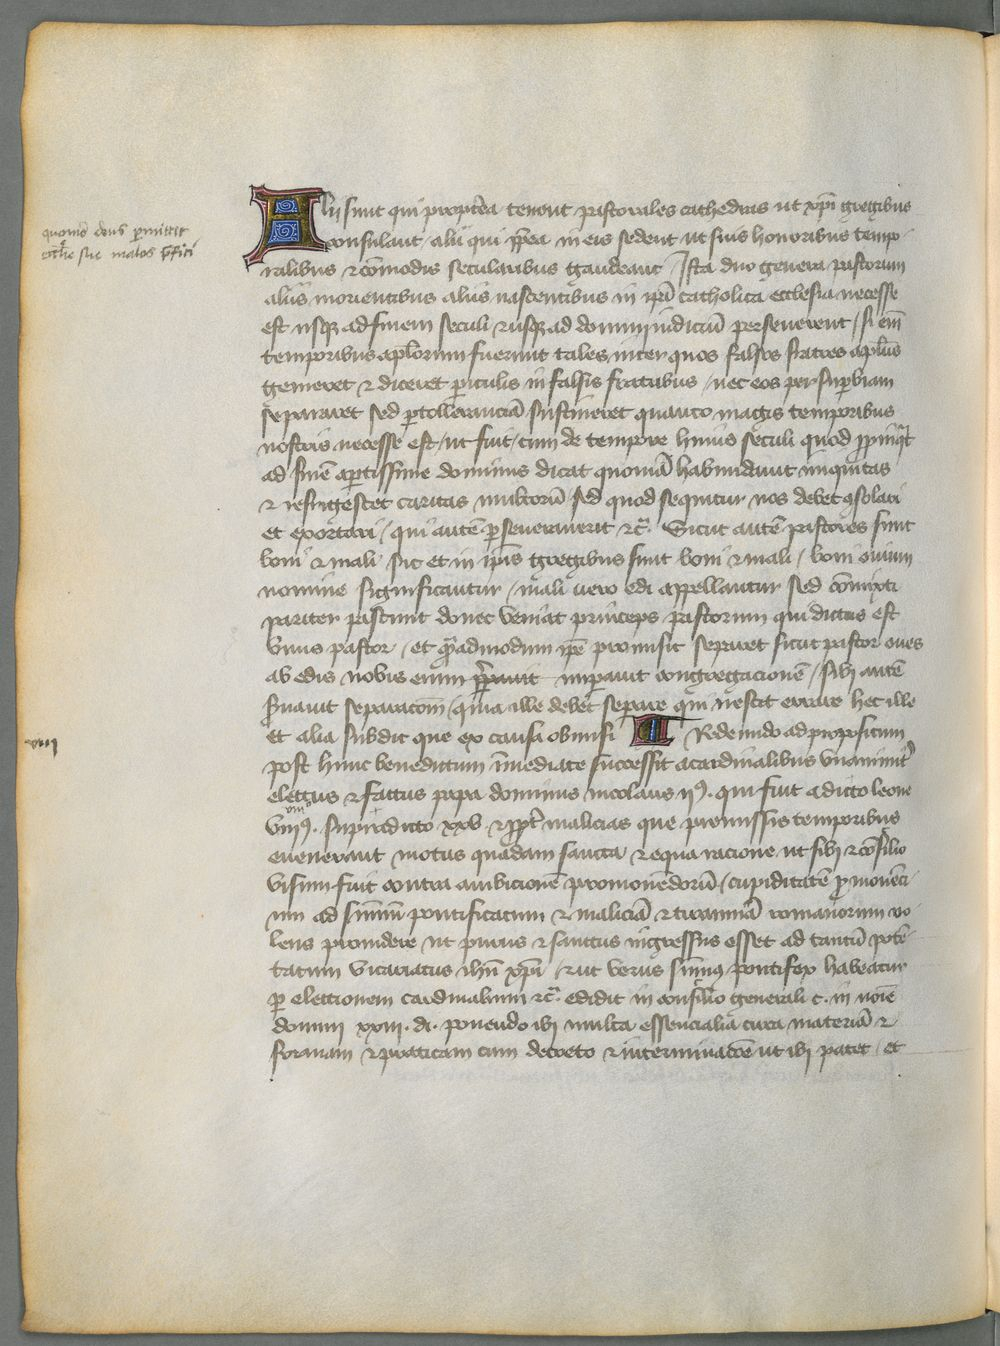 quomodo deus permittit
ecclesie sue malos prefici
Alii sunt qui propterea tenent pastorales cathedras ut xpi gregibus
consulant / alii qui propterea in eis sedent ut suis honoribus tempo-
ralibus et comodis secularibus gaudeant / Ista duo genera pastorum
aliis morientibus aliis nascentibus in ipsa catholica ecclesia necesse
est usque ad finem seculi et usque ad domini iudicium perseverent / si enim
temporibus apostolorum fuerunt tales inter quos falsos fratres apostolus
gemeret et diceret periculis in falsis fratribus / nec eos per superbiam
separaret sed per tolleranciam sustineret quanto magis temporibus
nostris necesse est / ut fuit / cum de tempore huius seculi quod propinquat
ad finem apertissime dominus dicat quoniam habundavit iniquitas
et refrigescet caritas multorum sed quod sequitur nos debet consolari
et exortari / qui autem perseveraverit etc. Sicut autem pastores sunt
boni et mali / sic et in ipsis gregibus sunt boni et mali / boni ovium
nomine significantur / mali vero edi appellantur sed comixti
pariter pascunt donec veniat princeps pastorum qui dictus est
unus pastor / et quemadmodum ipse promisit separet sicut pastor oves
ab edis nobis enim imperavit congregacionem / sibi autem
servavit separacionem / quia ille debet separare qui nescit errare hec ille
et alia subdit que ex causa obmisi Redeundo ad propositum
viii
post hunc benedictum immediate successit a cardinalibus unanimiter
electus et factus papa dominus nicolaus ii9. qui fuit a dicto leone
viii
viii9. supradicto xxv. et propter malicias que premissis temporibus
evenerant motus quadam sancta et equa racione ut sibi et consilio
visum fuit contra ambicionem promovendorum / cupiditatem promovenci-
um ad summum pontificatum et maliciam et tirannia romanorum vo-
lens providere ut purus et sanctus ingressus esset ad tantum pote-
tatum vicariatus ihu xpi / et ut verus summus pontifex habeatur
per electionem cardinalium etc. edidit in consilio generali c. in noie
domini xxiii. di. ponendo ibi multa essencialia circa materiam et
formam et practicam cum decreto et interminacione ut ibi patet / et